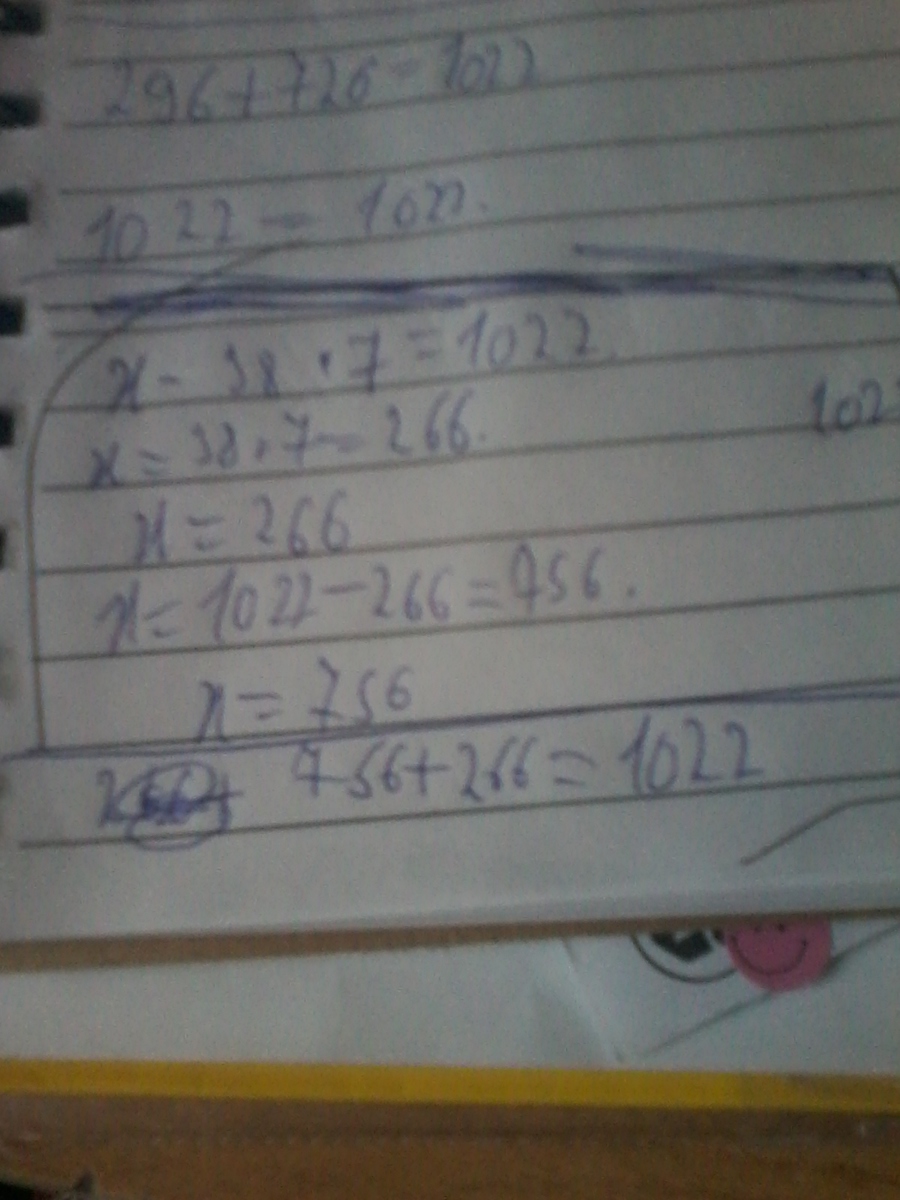 296+726=1022
1022 = 1022.
x - 38 · 7 = 1022.
102
x = 38 · 7 = 266.
x = 266
x = 1022 - 266 = 756.
x = 756
756 + 266 = 1022